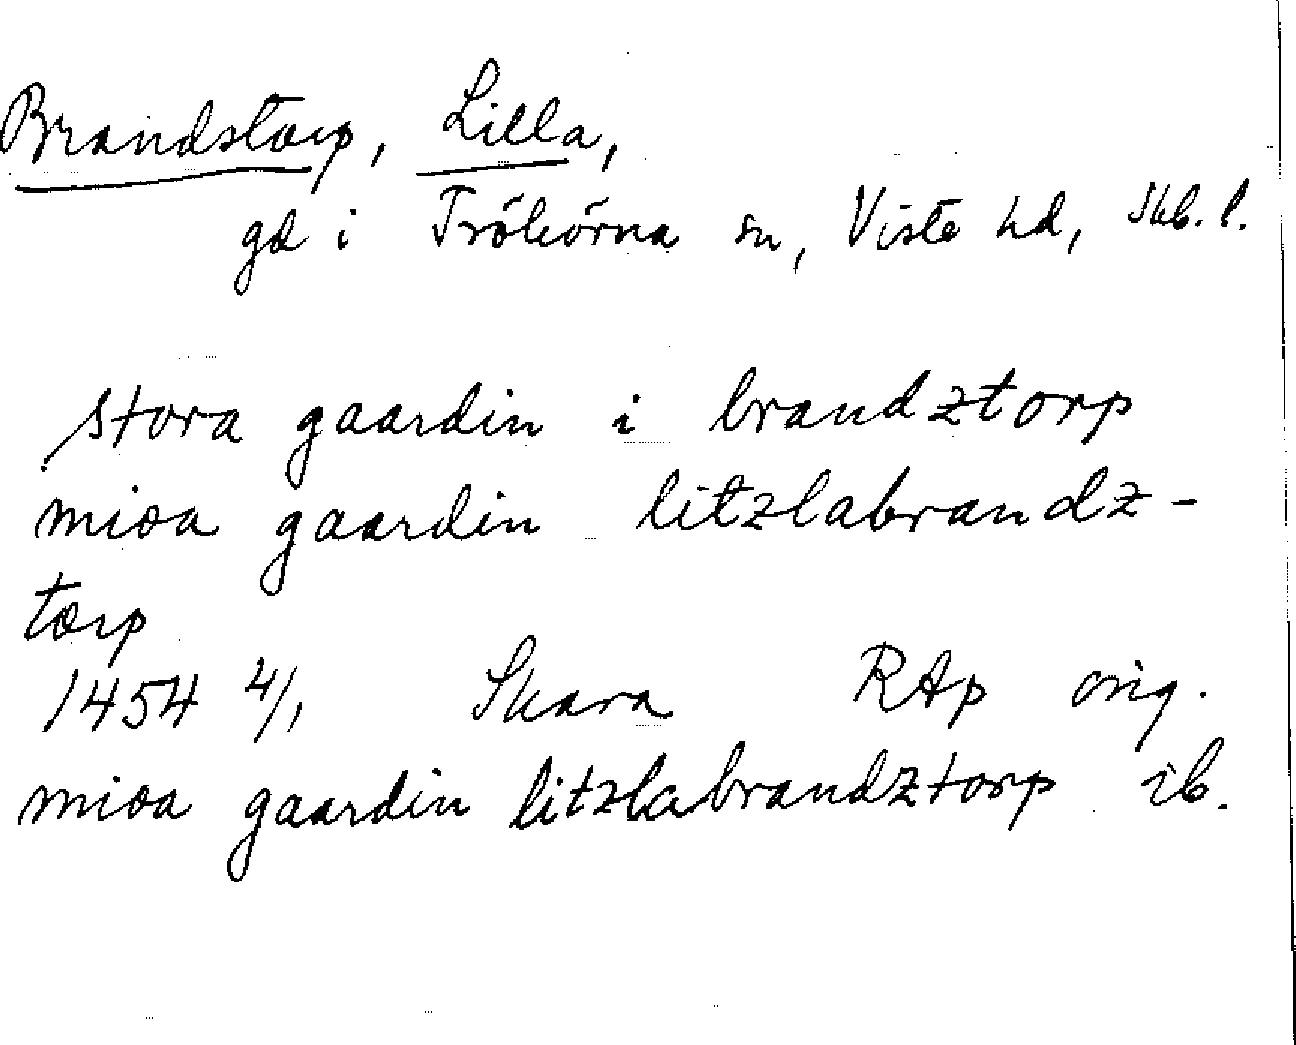 Brandstorp, Lilla,
gd i Trökörna sn, Viste hd, Skb. l.
stora gaardin i brandztorp
miøa gaardin litzlabrandz-
torp
1454 4/1 Skara RAp orig.
miøa gaardin litzlabrandztorp ib.